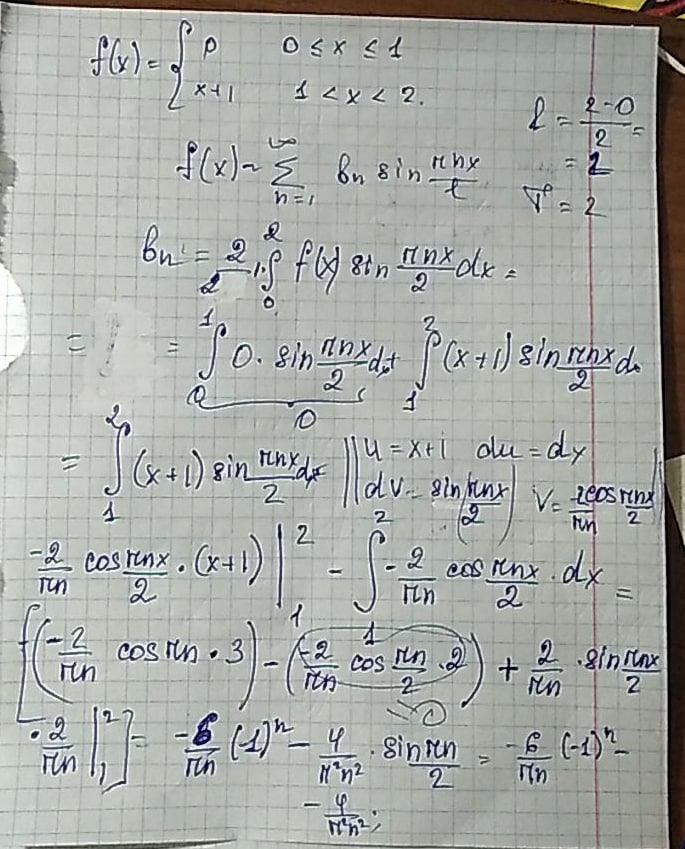 f(x) = { 0    0 ≤ x ≤ 1
x+1    1 < x < 2.
l = (2-0)/2 =
= 2
T = 2
f(x) ~ ∑_{n=1}^{∞} bn sin πnx/l
bn = 2/2 · ∫_0^2 f(x) sin πnx/2 dx =
= = ∫_0^1 0 · sin πnx/2 dx + ∫_1^2 (x+1) sin πnx/2 dx
0
= ∫_1^2 (x+1) sin πnx/2 dx = || u = x+1  du = dx
dv = sin(πnx/2)  v = -2cosπnx/πn 2 ||
-2/πn cos πnx/2 · (x+1) |_1^2 - ∫_1^2 -2/πn cos πnx/2 · dx =
[(-2/πn cos πn · 3) - (-2/πn cos πn/2 · 2) + 2/πn · sin πnx/2
0
· 2/πn |_1^2 ] = -6/πn (-1)^n - 4/π²n² · sin πn/2 = -6/πn (-1)^n -
- 4/π²n² ;